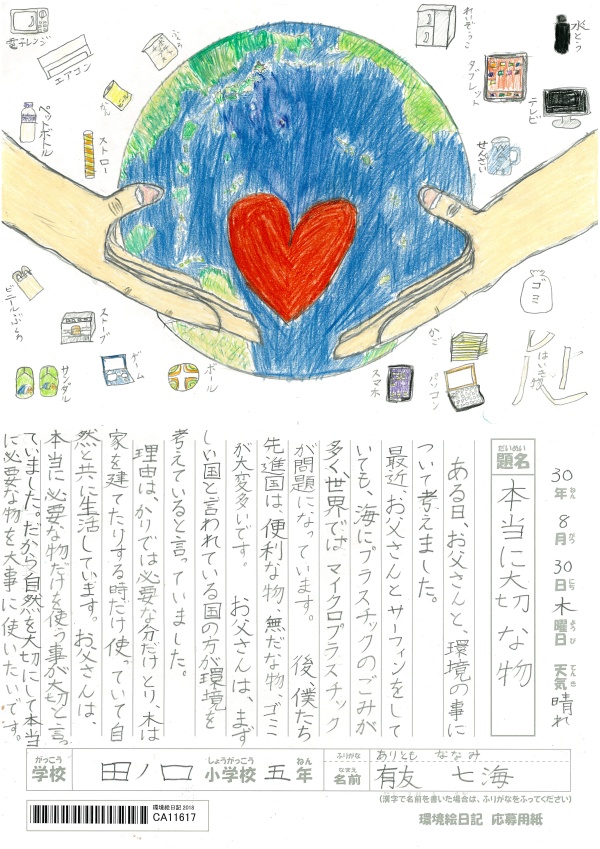 電子レンジ
エアコン
ふくろ
かん
ペットボトル
ストロー
れいぞうこ
水とう
タブレット
テレビ
せんざい
ビニールぶくろ
ストーブ
サンダル
ゲーム
ボール
スマホ
かご
パソコン
ゴミ
はいき物
30年 8月 30日 木曜日 天気 晴れ
ねん がつ にち ようび てんき
だいめい
題名 本当に大切な物
ある日、お父さんと、環境の事に
ついて考えました。
最近、お父さんとサーフィンをして
いても、海にプラスチックのごみが
多く、世界では マイクロプラスチック
が問題になっています。 後、僕たち
先進国は、便利な物、無だな物、ゴミ
が大変多いです。 お父さんは、まず
しい国と言われている国の方が環境を
考えていると言っていました。
理由は、かりでは必要な分だけとり、木は
家を建てたりする時だけ使っていて自
然と共に生活しています。お父さんは、
本当に必要な物だけを使う事が大切と言っ
ていました。だから自然を大切にして本当
に必要な物を大事に使いたいです。
がっこう しょうがっこう ねん
学校 田ノ口 小学校 五 年
ふりがな ありとも ななみ
なまえ
名前 有友 七海
(漢字で名前を書いた場合は、ふりがなをふってください)
環境絵日記2018
CA11617
環境絵日記 応募用紙